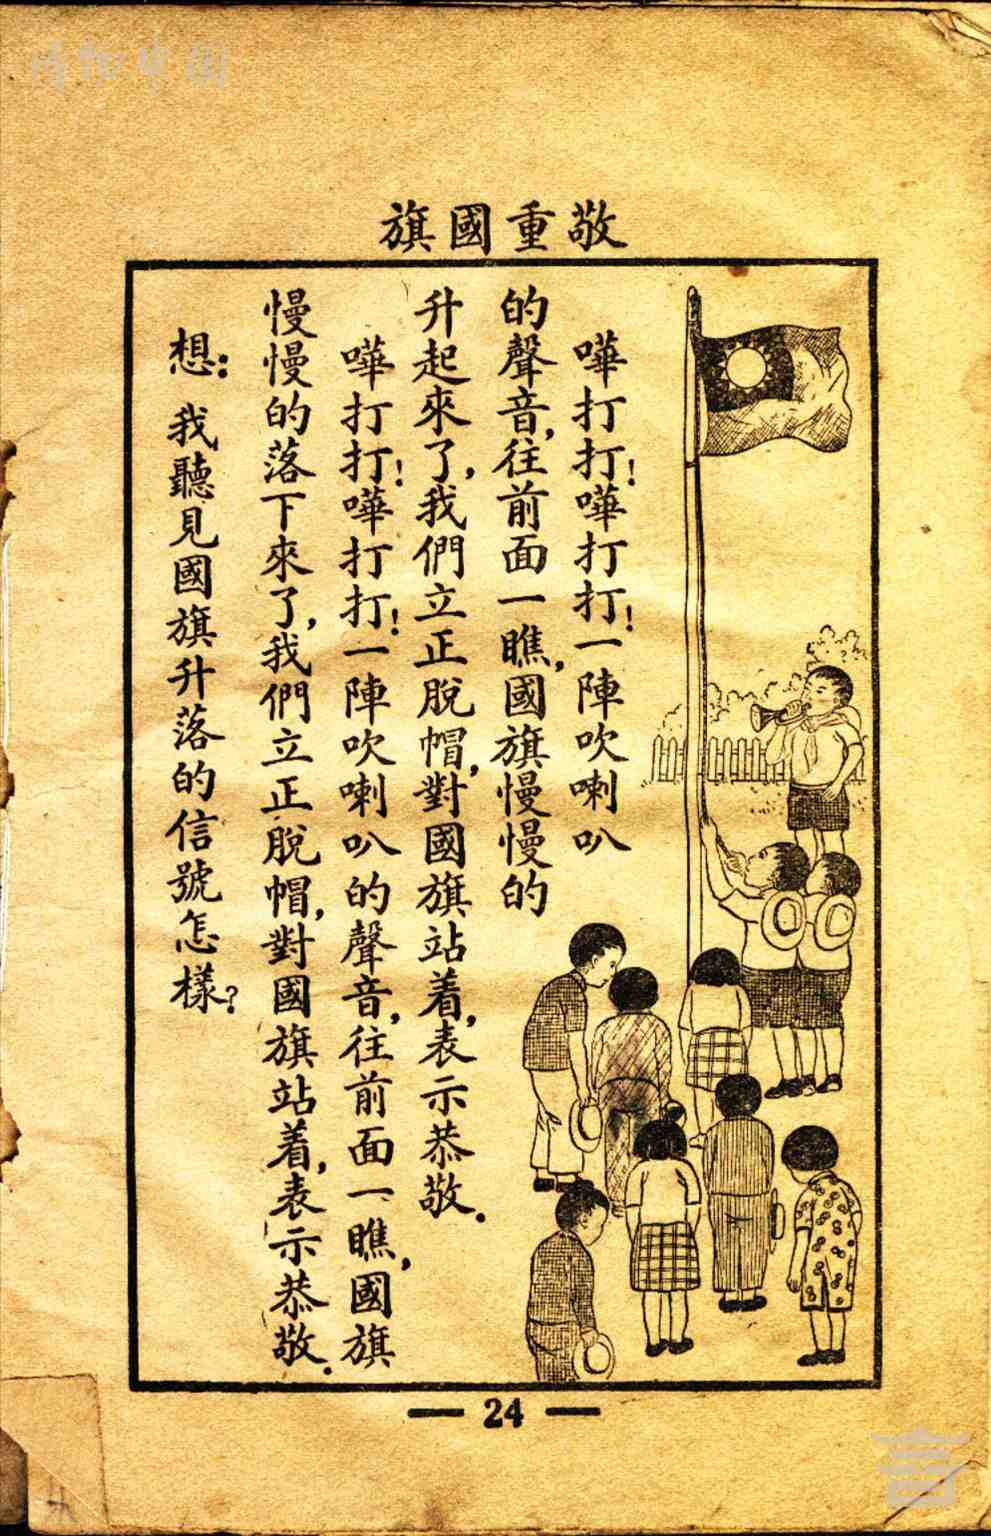 敬重國旗
嘩打打！嘩打打！一陣吹喇叭
的聲音，往前面一瞧，國旗慢慢的
升起來了，我們立正脫帽，對國旗站着，表示恭敬．
嘩打打！嘩打打！一陣吹喇叭的聲音，往前面一瞧，國旗
慢慢的落下來了，我們立正脫帽，對國旗站着，表示恭敬．
想：我聽見國旗升落的信號怎樣？
— 24 —